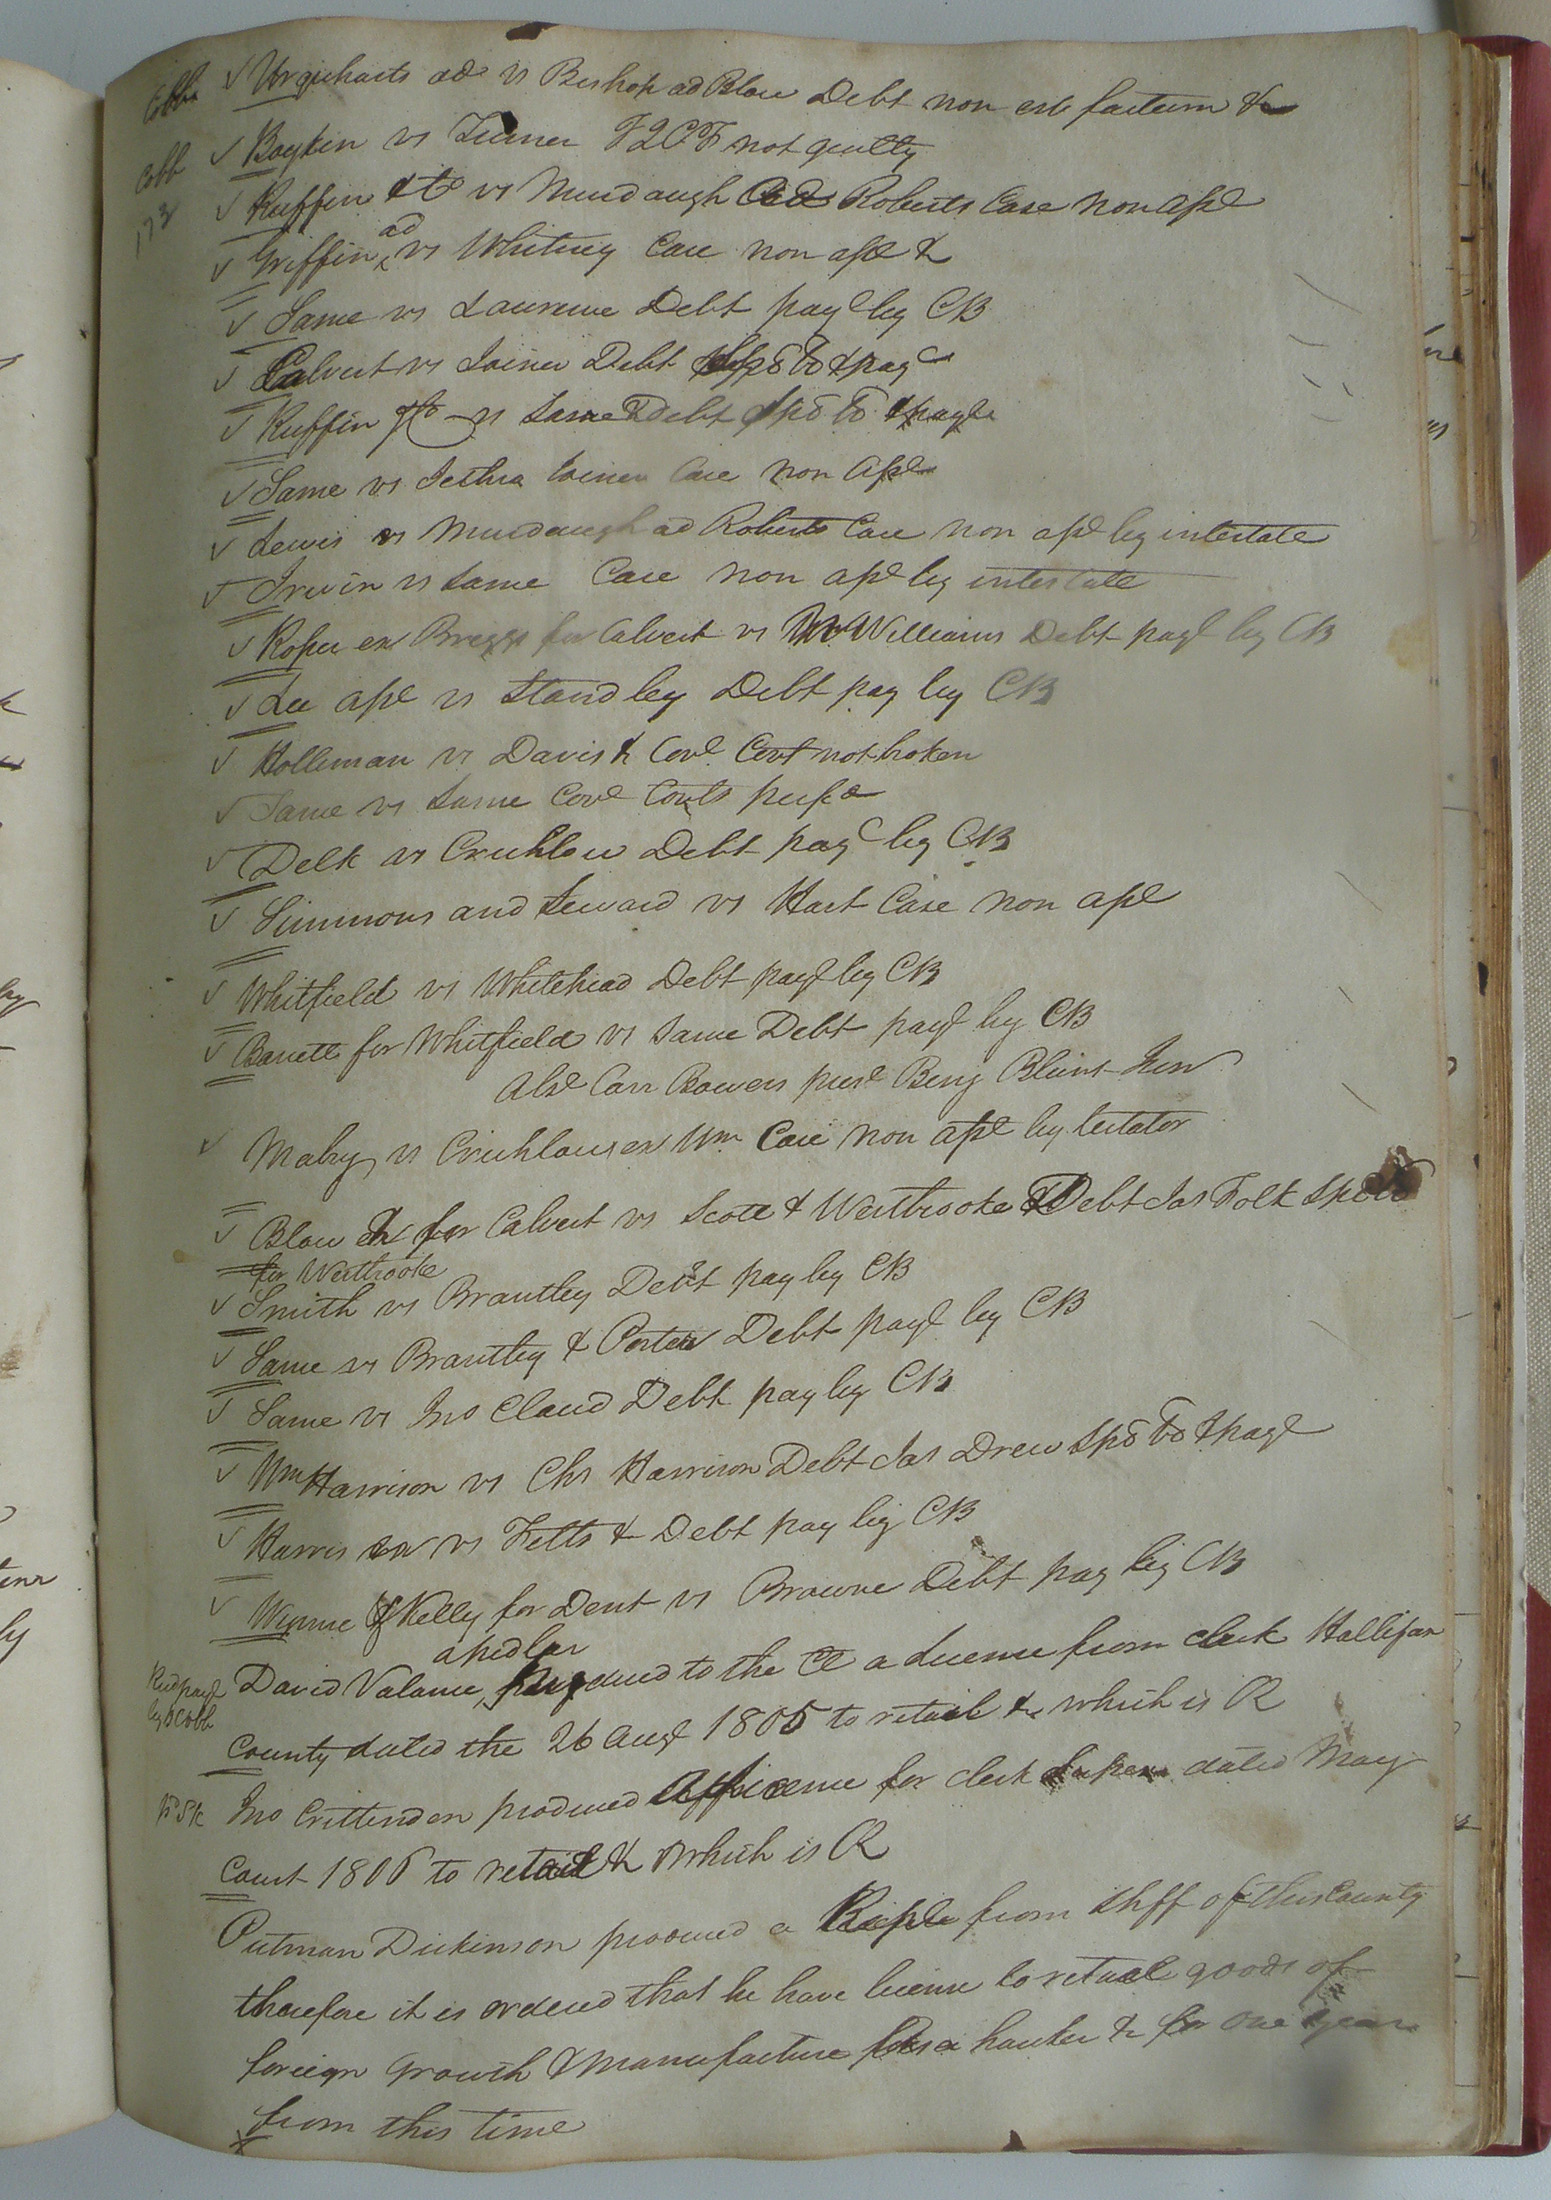 Cobb ✓ Urquharts ads vs Bishop ad Blow Debt non est factum &c
Cobb ✓ Boykin vs Turner not guilty
173 ✓ Ruffin & Co vs Murdaugh ads Roberts Case non asst
✓ Griffin ad vs Whitney Case non asst &
✓ Same vs Laurence Debt payt by CB
✓ Calvert vs Joiner Debt spo bo & payt
✓ Ruffin & Co vs Same Debt spo bo & payt
✓ Same vs Jethra Joiner Case non asst
✓ Lewis vs Murdaugh ad Roberts Case non asst by intestate
✓ Irwin vs Same Case non asst by intestate
✓ Roper ex Briggs for Calvert vs Williams Debt payt by CB
✓ Lee asse vs Standley Debt pay by CB
✓ Holleman vs Davis & Covt Covt not broken
✓ Same vs Same Covt Covts perfd
✓ Delk vs Cruchlow Debt payt by CB
✓ Simmons and Seward vs Hart Case non asst
✓ Whitfield vs Whitehead Debt payt by CB
✓ Barrett for Whitfield vs Same Debt payt by CB
Abst Carr Bowers prest Benj Blunt Junr
✓ Mabry vs Cruchlow ex Wm Case non asst by testator
✓ Blow Ex for Calvert vs Scott & Westbrooke Debt Jas Folk
for Westbrooke
✓ Smith vs Brantley Debt pay by CB
✓ Same vs Brantley & Porter Debt payt by CB
✓ Same vs Jno Claud Debt pay by CB
✓ Wm Harrison vs Chs Harrison Debt Jas Drew spo bo & payt
✓ Harris vs Felts & Debt pay by CB
✓ Wynne & Kelly for Dent vs Browne Debt pay by CB
a pedlar
David Valance, produced to the Ct a License from clerk Hallifax
by Cobb
County dated the 26 Augt 1805 to retail &c which is R
Jno Crittenden produced a License for clerk dated May
Court 1806 to retail &c which is R
Putman Dickinson produced a from shff of this County
therefore it is ordered that he have license to retail goods of
foreign growth & manufacture as a hawker &c for one year
from this time